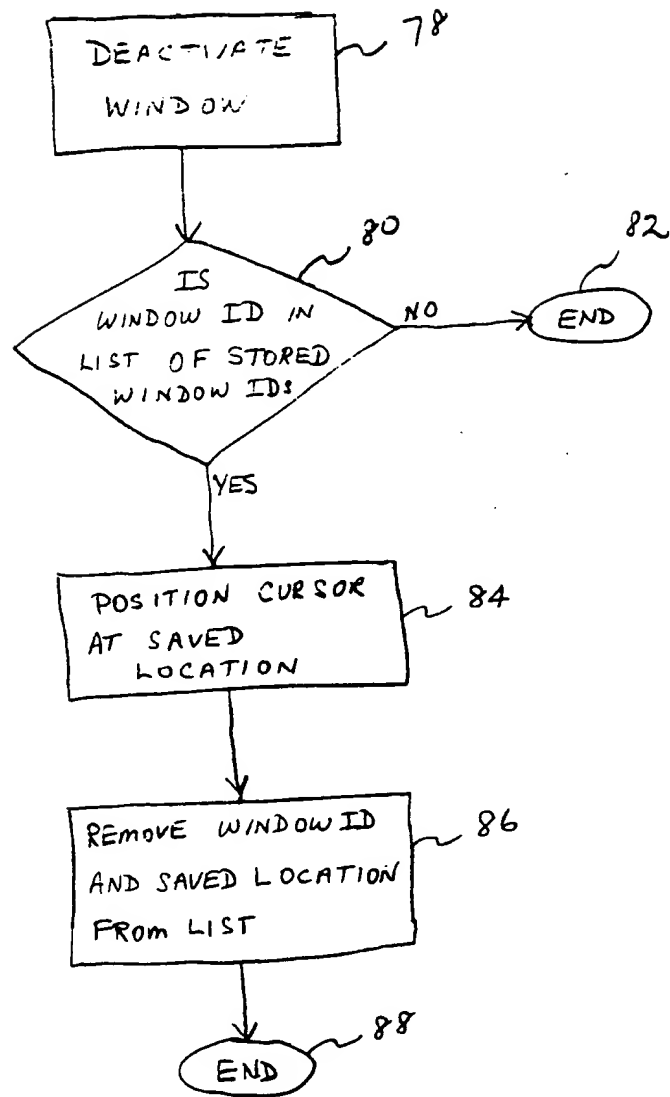 DEACTIVATE
WINDOW
78
IS
WINDOW ID IN
LIST OF STORED
WINDOW IDs
80
NO
END
82
YES
POSITION CURSOR
AT SAVED
LOCATION
84
REMOVE WINDOW ID
AND SAVED LOCATION
FROM LIST
86
END
88